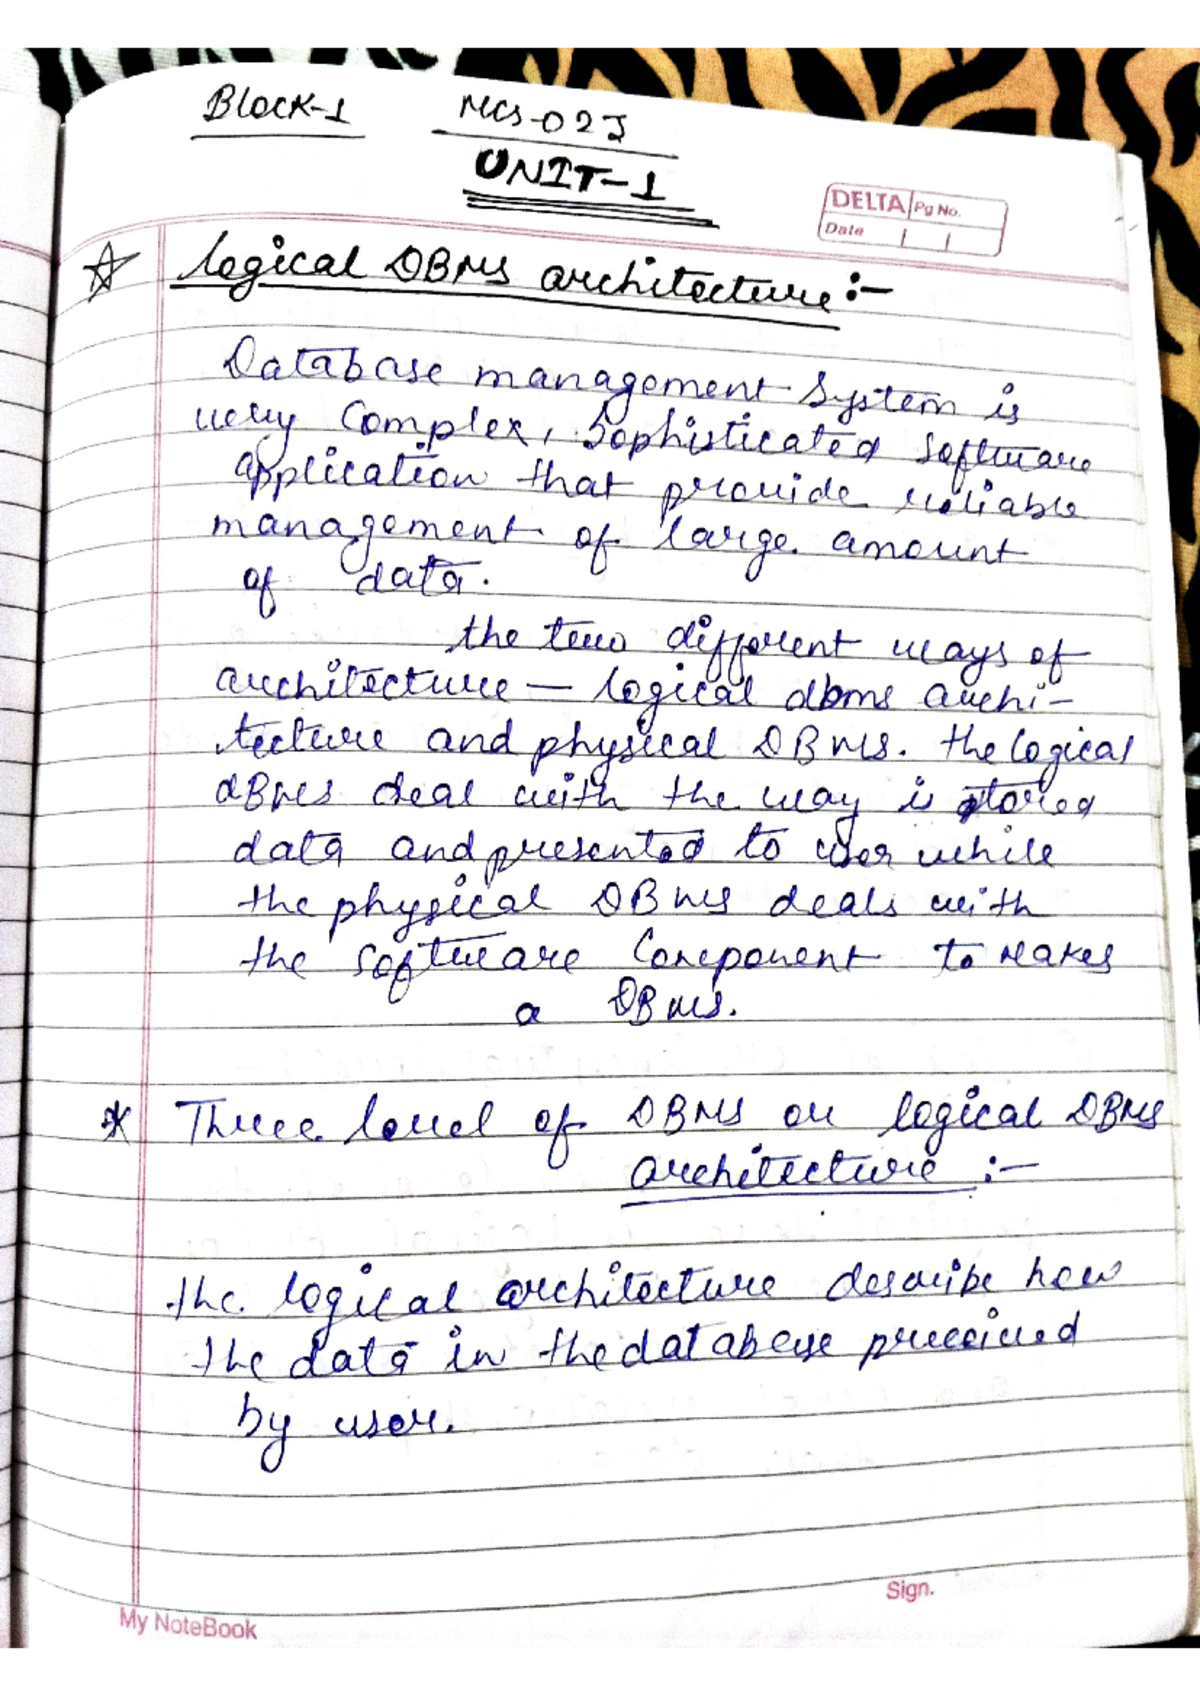 Block-1 MCS-023
UNIT-1
DELTA Pg No.
Date
Logical DBMS architecture :-
Database management System is
very Complex, Sophisticated software
application that provide reliable
management of large amount
of data.
the two different ways of
architecture — logical dbms archi-
tecture and physical DBMS. the logical
dBMS deal with the way is stored
data and presented to user while
the physical DBMS deals with
the software Component to makes
a DBMS.
Three level of DBMS or logical DBMS
architecture :-
the logical architecture describe how
the data in the database preceived
by user.
Sign.
My NoteBook